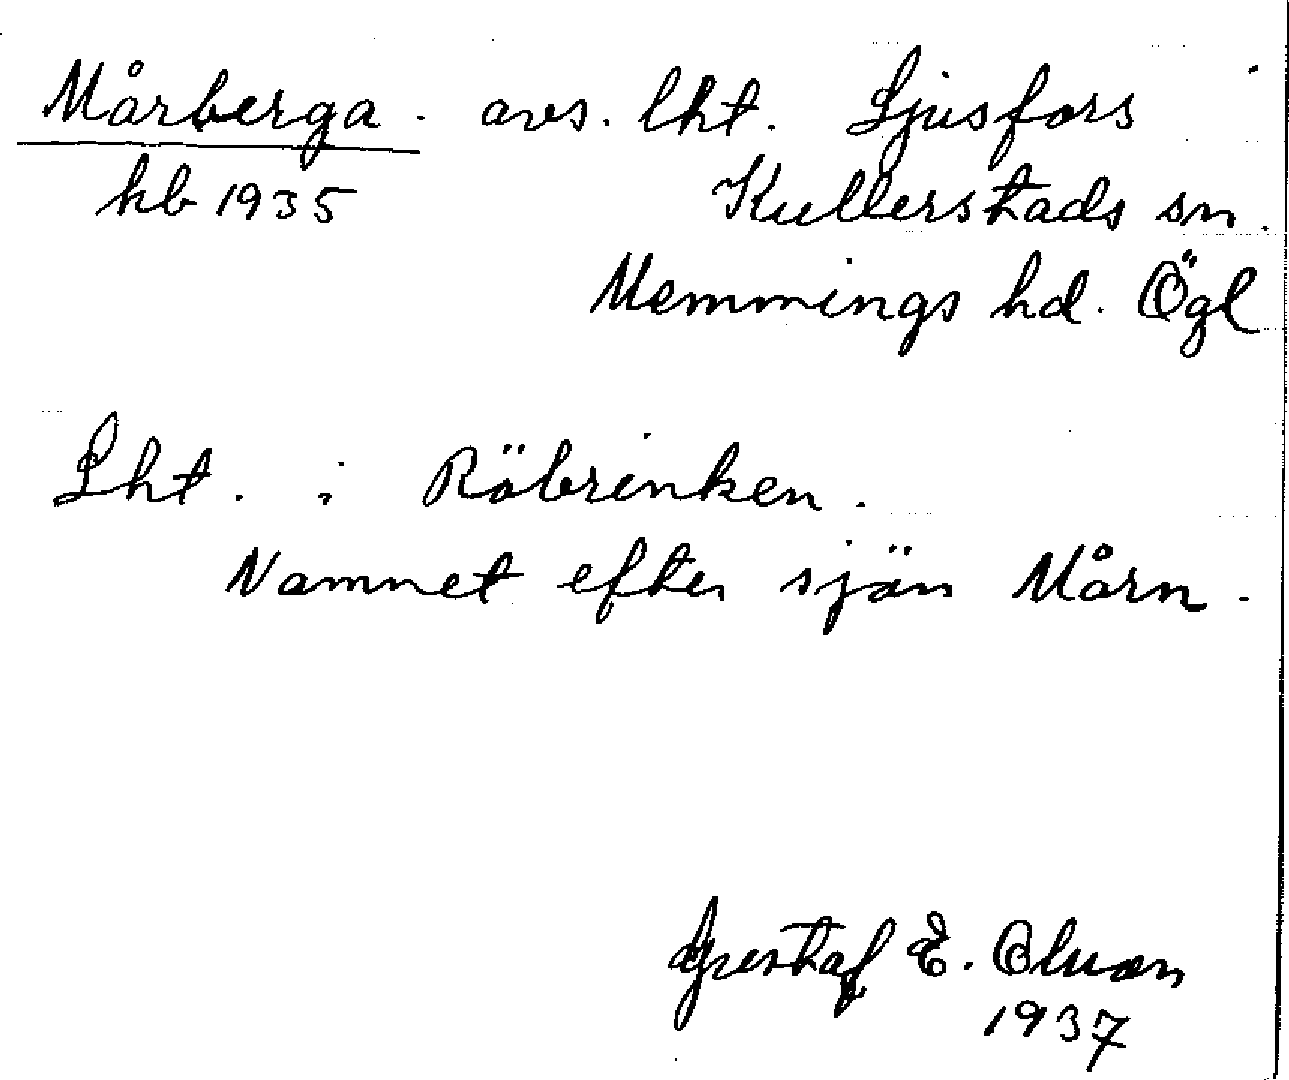 Mårberga. avs. lht. Ljusfors
kb 1935 Kullerstads sn.
Memmings hd. Ögl
Lht. i Röbrinken.
Namnet efter sjön Mårn.
Gustaf E. Olsson
1937